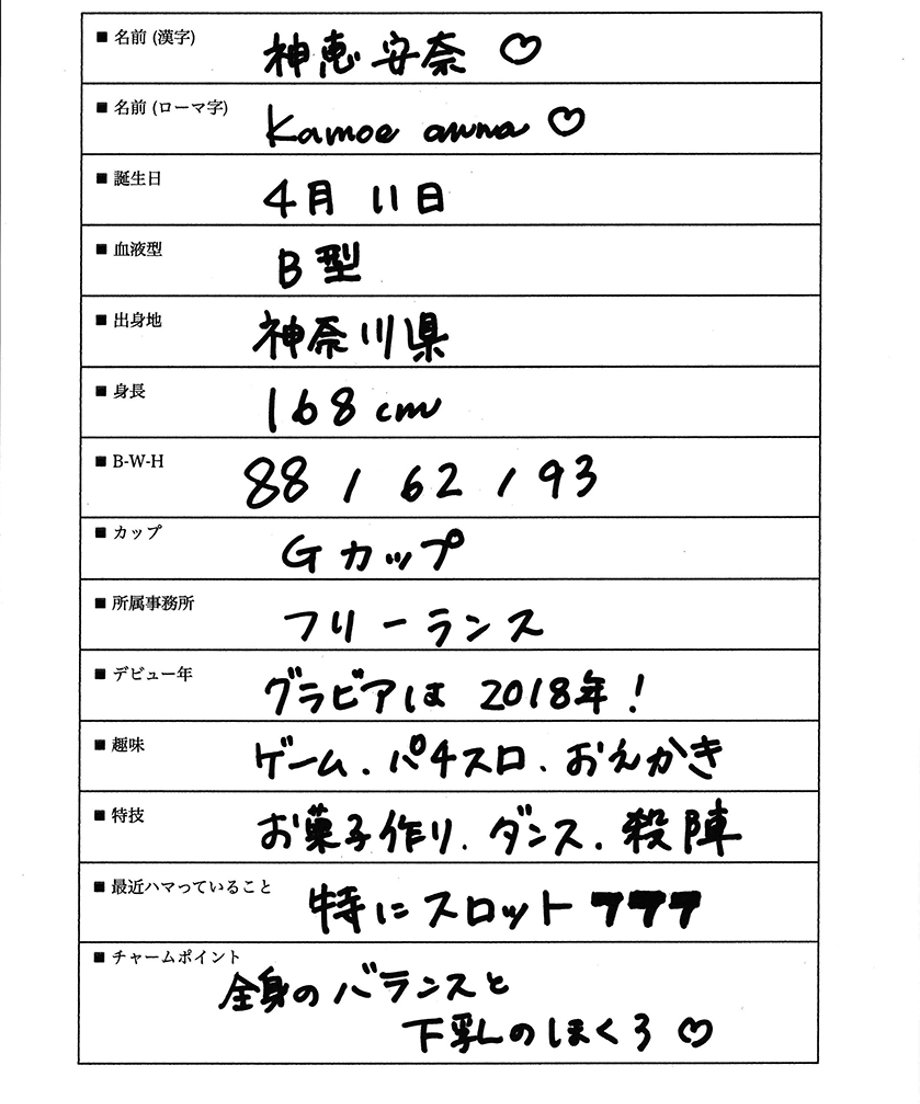 ■ 名前 (漢字) 神恵安奈 ♡
■ 名前 (ローマ字) Kamoe anna ♡
■ 誕生日 4月 11日
■ 血液型 B型
■ 出身地 神奈川県
■ 身長 168cm
■ B-W-H 88 / 62 / 93
■ カップ Gカップ
■ 所属事務所 フリーランス
■ デビュー年 グラビアは 2018年!
■ 趣味 ゲーム、パチスロ、おえかき
■ 特技 お菓子作り、ダンス、殺陣
■ 最近ハマっていること 特にスロット 777
■ チャームポイント
全身のバランスと
下乳のほくろ ♡